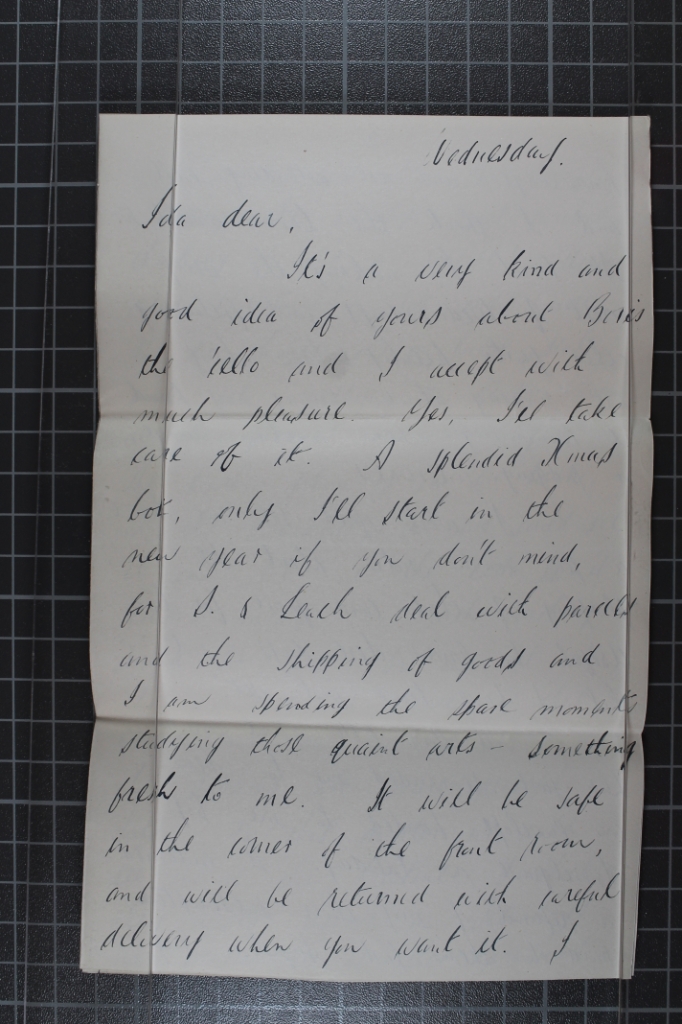 Wednesday.
Ida dear,
It's a very kind and
good idea of yours about Boris
the 'cello and I accept with
much pleasure. Yes, I'll take
care of it. A splendid Xmas
box, only I'll start in the
new year if you don't mind,
for S. & Leach deal with parcels
and the shipping of goods and
I am spending the spare moments
studying these quaint arts - something
fresh to me. It will be safe
in the corner of the front room,
and will be returned with careful
delivery when you want it. I